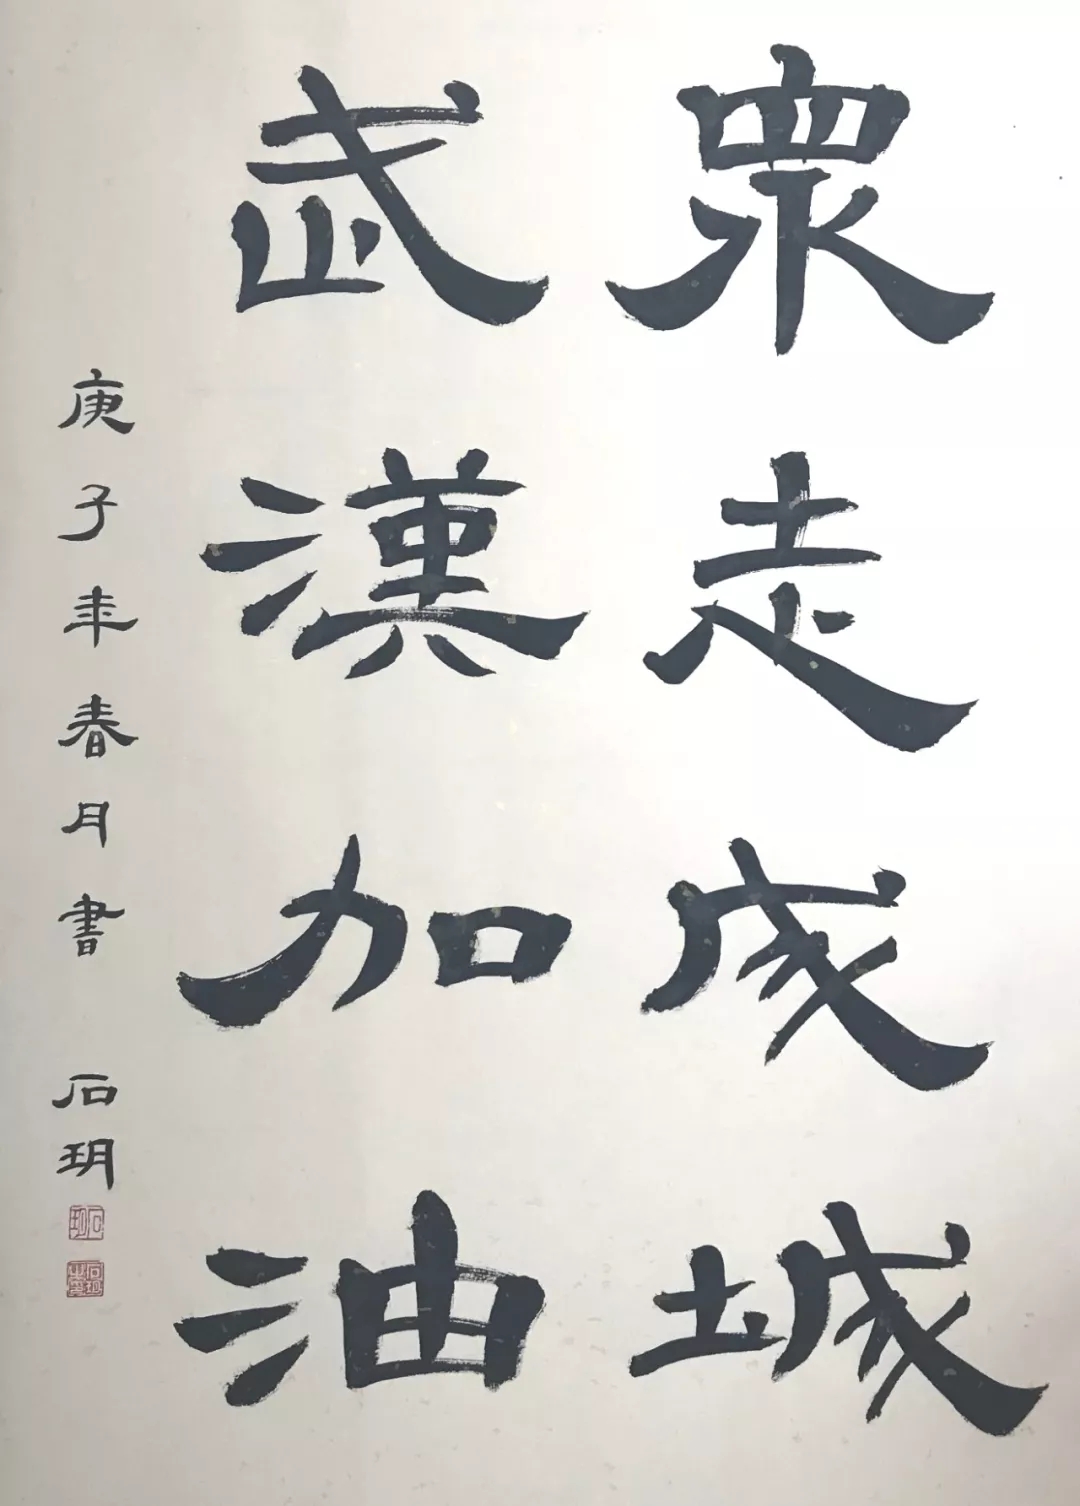 衆志成城
武漢加油
庚子年春月書 石玥
石玥